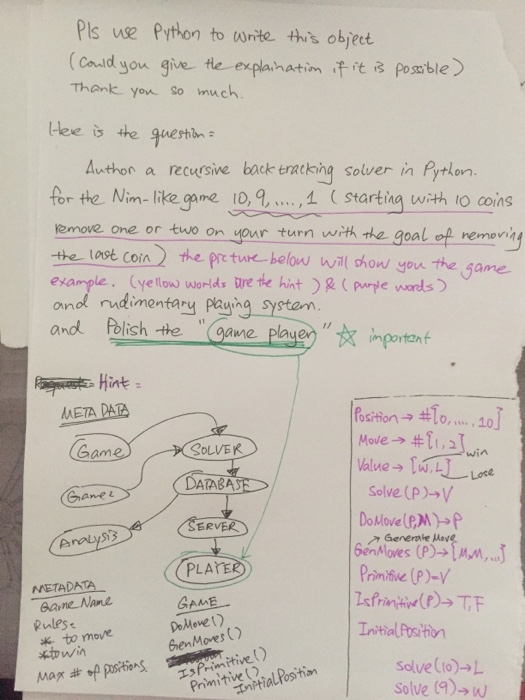 Pls use Python to write this object
(Could you give the explaination if it is possible)
Thank you so much.
Here is the question:
Author a recursive backtracking solver in Python.
for the Nim-like game 10, 9, ...., 1 (starting with 10 coins
remove one or two on your turn with the goal of removing
the last coin) the picture below will show you the game
example. (yellow worlds are the hint) & (purple words)
and rudimentary playing system.
and Polish the "game player" ☆ important
Hint:
META DATA
Game
SOLVER
DATABASE
Game2
SERVER
Analysis
PLAYER
METADATA
Game Name
Rules:
* to move
* to win
Max # of positions
GAME
DoMove()
GenMoves()
IsPrimitive()
Primitive()
InitialPosition
Position → #[0,....,10]
Move → #[1,2]
Value → [W,L]
win
Lose
Solve(P)→V
DoMove(P,M)→P
→ Generate Move
GenMoves(P)→[M,M,...]
Primitive(P)=V
IsPrimitive(P)→T,F
Initial Position
Solve(10)→L
Solve(9)→W